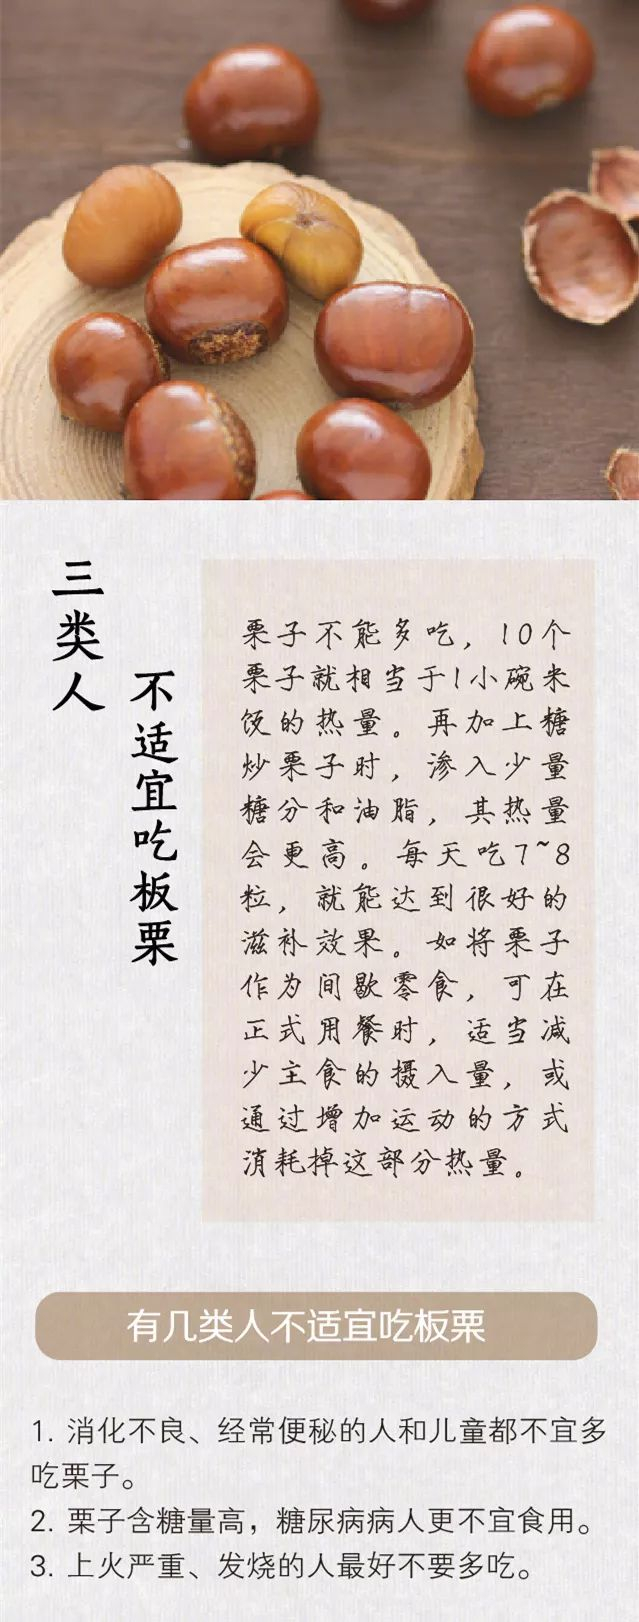 三类人
不适宜吃板栗
栗子不能多吃，10个
栗子就相当于1小碗米
饭的热量。再加上糖
炒栗子时，渗入少量
糖分和油脂，其热量
会更高。每天吃7~8
粒，就能达到很好的
滋补效果。如将栗子
作为间歇零食，可在
正式用餐时，适当减
少主食的摄入量，或
通过增加运动的方式
消耗掉这部分热量。
有几类人不适宜吃板栗
1. 消化不良、经常便秘的人和儿童都不宜多
吃栗子。
2. 栗子含糖量高，糖尿病病人更不宜食用。
3. 上火严重、发烧的人最好不要多吃。